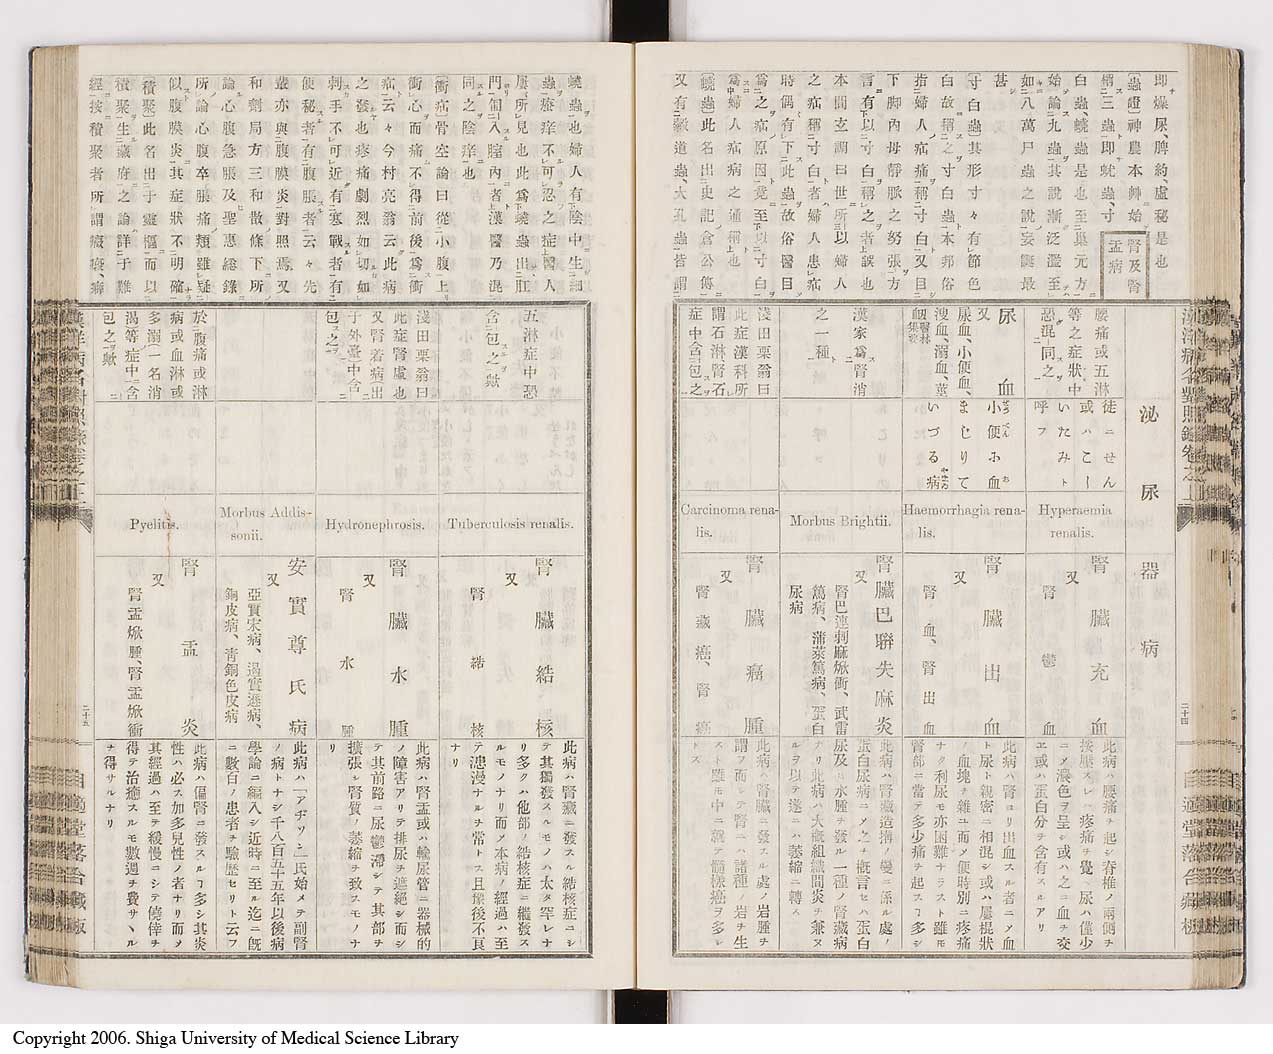 即燥尿、脾約、虛秘是也
腎及腎
盂病
白蟲、蟯蟲是也至巢元方
如八萬尸蟲之說妄誕最
甚
寸白蟲其形寸々有節色
白故稱之寸白蟲本邦俗
指婦人疝痛稱寸白又俗
言有以寸白稱之者誤
本間玄調曰世所以婦人
之疝稱寸白者婦人患疝
時偶有下此蟲故俗醫目
爲之疝原因竟至以寸白
爲婦人疝病之通稱也
蟯蟲此名出史記倉公傳
泌尿器病
腰痛或五淋
等之症狀中
恐混同之
徒ニせん
或ハこし
いたみト
呼フ
Hyperaemia
renalis.
腎臟充血
又
腎鬱血
此病ハ腰痛ヲ起シ脊椎ノ兩側ヲ
按壓スレハ疼痛ヲ覺ヘ尿ハ僅少
ニノ濃色ヲ呈シ或ハ之ニ血ヲ交
ヱ或ハ蛋白分ヲ含有スルアリ
尿血
又
尿血、小便血、
溲血、溺血、莖
衄醫林集要
小便ニ血
まじりて
いづる病
Haemorrhagia rena-
lis.
腎臟出血
又
腎血、腎出血
此病ハ腎ヨリ出血スル者ニノ血
ト尿ト親密ニ相混シ或ハ屢棍狀
ノ血塊ヲ雜ユ而メ便時別ニ疼痛
ナク利尿モ亦困難ナラスト雖モ
腎部ニ當テ多少痛ヲ起スヿ多シ
漢家爲腎消
之一種
Morbus Brightii.
腎臟巴聯失麻炎
又
腎巴連刺麻焮衝、武雷
篤病、蒲萊篤病、蛋白
尿病
此病ハ腎臟造搆ノ變ニ係ル處ノ
蛋白尿病ニメ之ヲ概言セハ蛋白
尿及ヒ水腫ヲ發ル一種ノ腎臟病
ナリ此病ハ大概組織間炎ヲ兼ヌ
ルヲ以テ遂ニハ萎縮ニ轉ス
淺田栗翁曰
此症漢科所
謂石淋腎石
症中含包之
Carcinoma rena-
lis.
腎臟癌腫
又
腎臟癌、腎癌
此病ハ腎臟ニ發スル處ノ岩腫ヲ
謂フ而シテ腎ニハ諸種ノ岩ヲ生
スト雖モ中ニ就テ髓樣癌ヲ多シ
トス
二十四
蟯蟲也婦人有陰中生細
蟲癢痒不可忍之症醫人
屢所見也此爲蟯蟲出肛
門匍入膣內者漢醫乃混
同之陰痒也
衝疝骨空論曰從小腹上
衝心而痛不得前後爲衝
疝云々今村亮翁云此病
之發也疼痛劇烈如切如
刺手不可近有寒戰者有
便秘者有腹脹者云々先
蓋亦與腹膜炎對照焉又
和劑局方三和散條下所
論心腹急脹及聖惠總錄
所論心腹卒脹痛類雖疑
似腹膜炎其症狀不明確
積聚此名出于靈樞而以
積聚生藏府之論詳于難
經按積聚者所謂癥瘕、癖
五淋症中恐
含包之歟
Tuberculosis renalis.
腎臟結核
又
腎結核
此病ハ腎臟ニ發スル結核症ニシ
テ其獨發スルモノハ太タ罕レナ
リ多クハ他部ノ結核症ニ繼發ス
ルモノナリ而ノ本病ノ經過ハ至
テ漫漫ナルヲ常トス且豫後不良
ナリ
淺田栗翁曰
此症腎虛也
又腎着病出
于外臺中含
包之
Hydronephrosis.
腎臟水腫
又
腎水腫
此病ハ腎盂或ハ輸尿管ニ器械的
ノ障害アリテ排尿ヲ遮絕シ而シ
テ其前路ニ尿鬱滯シテ其部ヲ
擴張シ腎質ノ萎縮ヲ致スモノナ
リ
Morbus Addis-
sonii.
安實尊氏病
又
亞實宋病、過實遜病、
銅皮病、靑銅色皮病
此病ハ「アヂソン」氏始メテ副腎
ノ病トナシ千八百五十五年以後病
學論ニ編入シ近時ニ至ル迄ニ旣
ニ數百ノ患者ヲ驗歷セリト云フ
於腹痛或淋
病或血淋或
多溺一名消
渴等症中含
包之歟
Pyelitis.
腎盂炎
又
腎盂焮腫、腎盂焮衝
此病ハ偏腎ニ發スルヿ多シ其炎
性ハ必ス加多兒性ノ者ナリ而メ
其經過ハ至テ緩慢ニシテ僥倖ヲ
得テ治癒スルモ數週ヲ費サヽル
ヲ得サルナリ
二十五
Copyright 2006. Shiga University of Medical Science Library